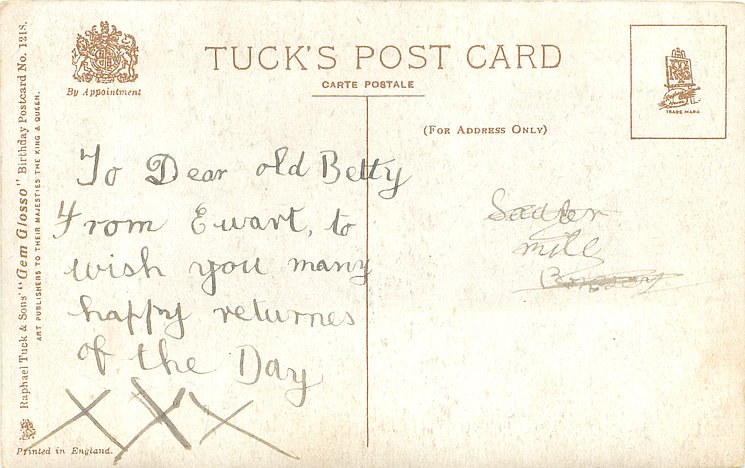 TUCK'S POST CARD
CARTE POSTALE
By Appointment
(FOR ADDRESS ONLY)
TRADE MARK
Raphael Tuck & Sons' "Gem Glosso" Birthday Postcard No. 1218.
ART PUBLISHERS TO THEIR MAJESTIES THE KING & QUEEN.
To Dear old Betty
From Ewart, to
wish you many
happy returnes
of the Day
XXX
mill
Printed in England.